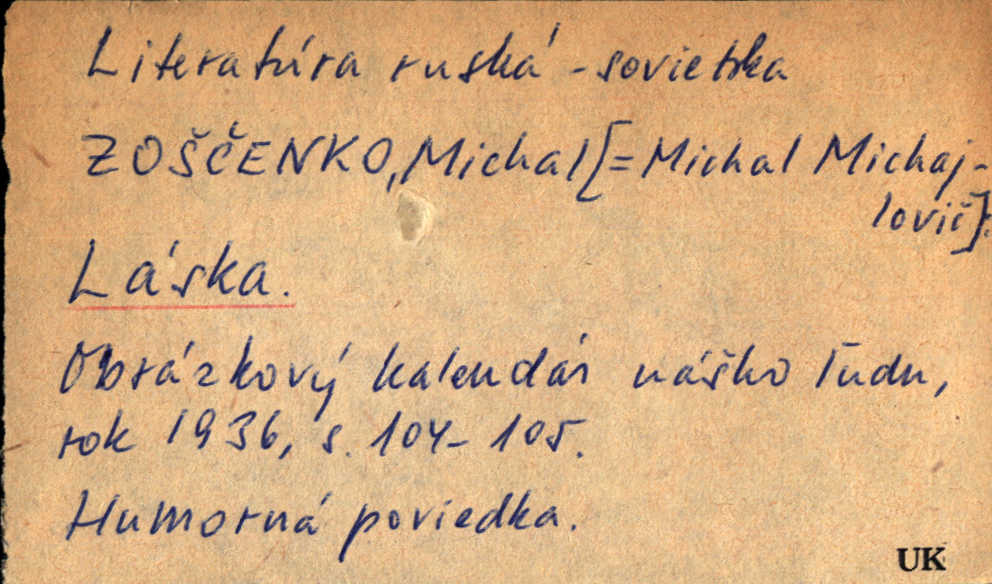 Literatúra ruská - sovietska
ZOŠČENKO, Michal [= Michal Michaj-
lovič].
Láska.
Obrázkový kalendár nášho ľudu,
rok 1936, s. 104-105.
Humorná poviedka.
UK